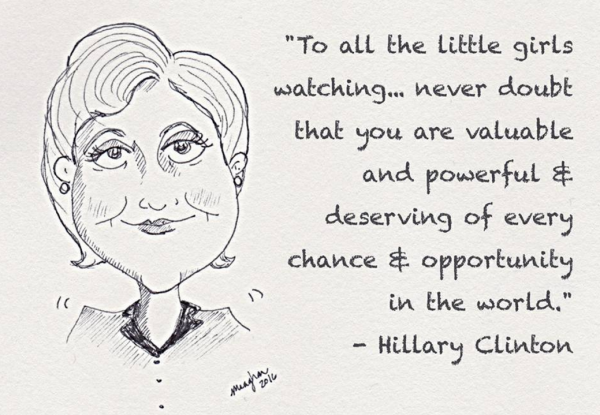 "To all the little girls
watching... never doubt
that you are valuable
and powerful &
deserving of every
chance & opportunity
in the world."
- Hillary Clinton
meaghan
2016